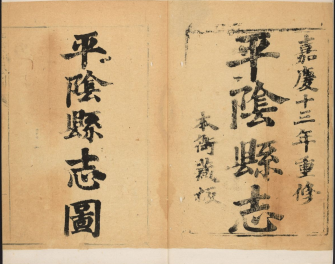 嘉慶十三年重修
平陰縣志
本衙藏板
平陰縣志圖